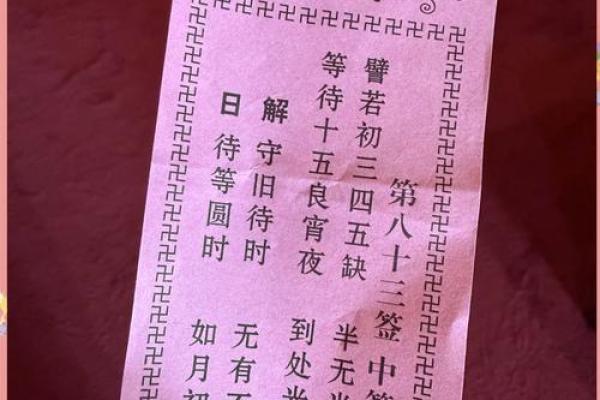 第八十三签 中
譬若初三四五缺 半无
等待十五良宵夜 到处
解 守旧待时 无有
日 待等圆时 如月初